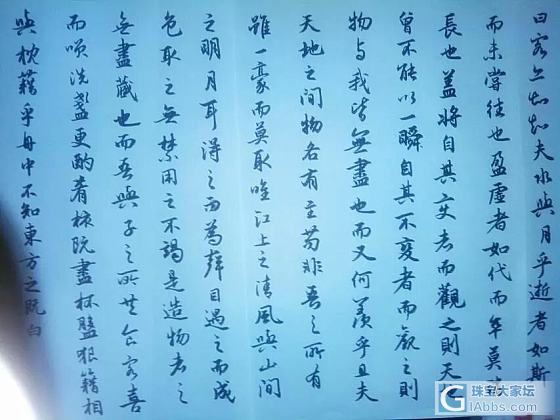 曰客亦知夫水與月乎逝者如斯
而未嘗往也盈虛者如代而卒莫
長也蓋將自其变者而觀之則天
曾不能以一瞬自其不变者而觀之則
物与我皆無盡也而又何羨乎且夫
天地之間物各有主苟非吾之所有
雖一豪而莫取唯江上之清風與山間
之明月耳得之而為聲目遇之而成
色取之無禁用之不竭是造物者之
無盡藏也而吾與子之所共食客喜
而咲洗盞更酌肴核既盡杯盤狼籍相
與枕籍乎舟中不知東方之既白
珠宝大家坛
GIAbbs.com